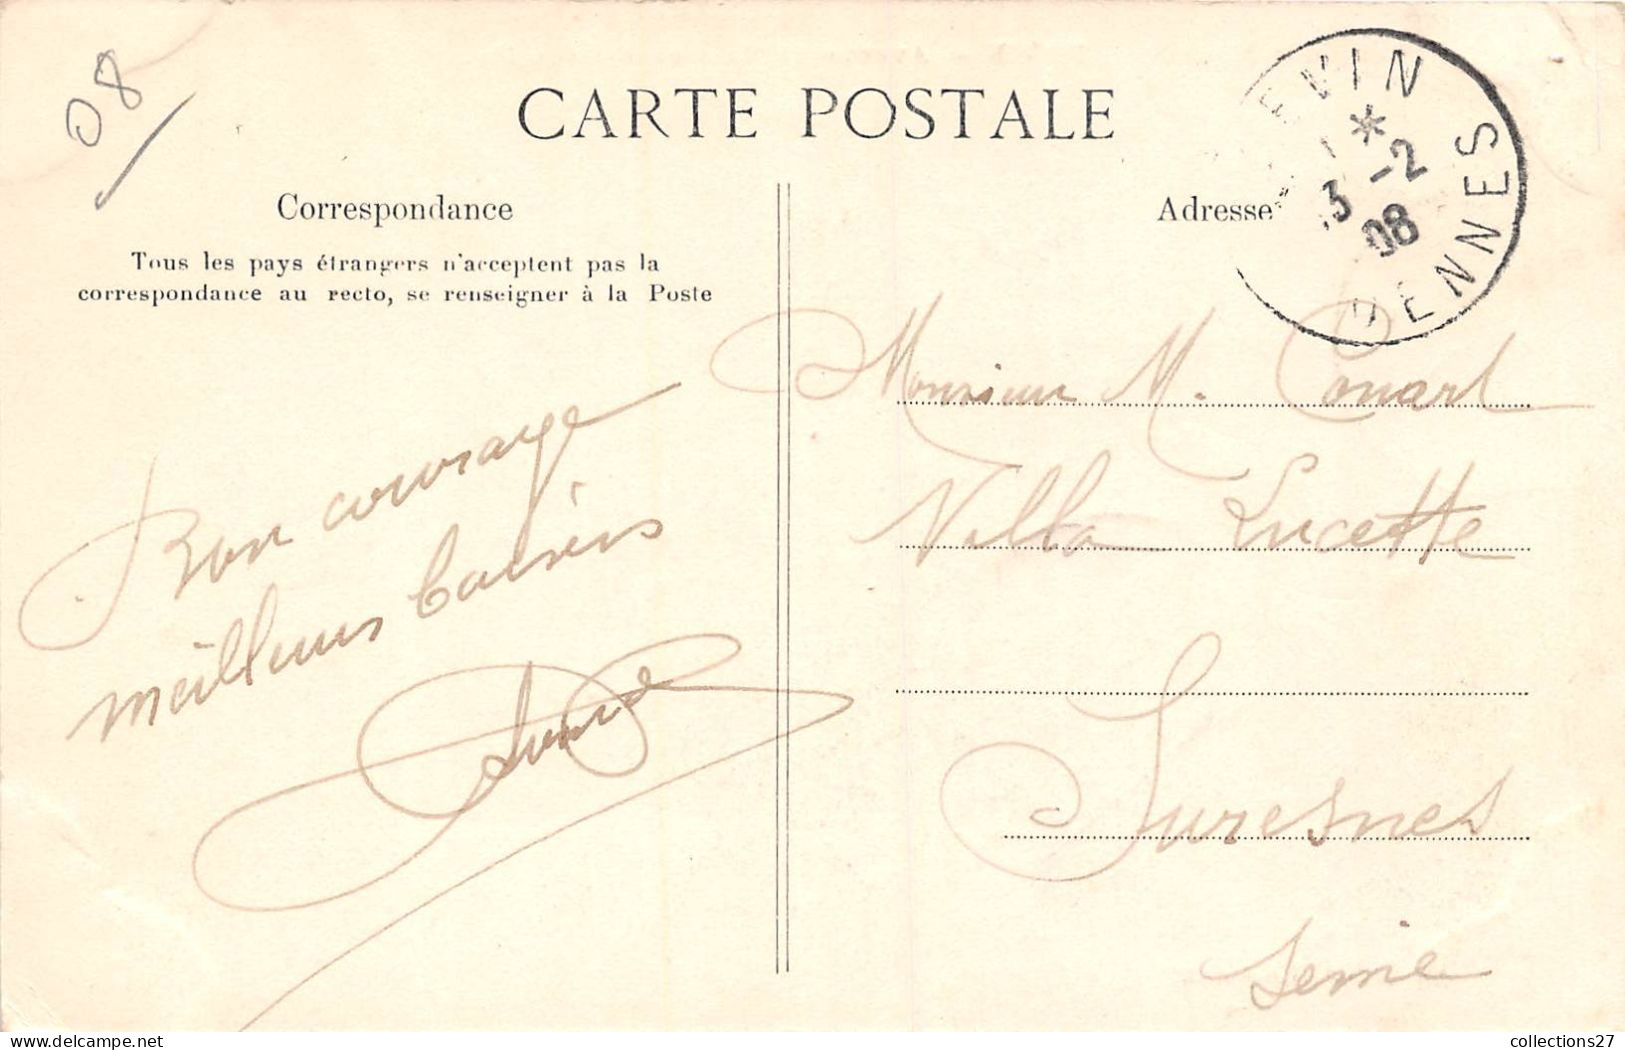 08
CARTE POSTALE
EVIN
*
3 -2
08
ARDENNES
Correspondance
Tous les pays étrangers n'acceptent pas la
correspondance au recto, se renseigner à la Poste
Adresse
Bon courage
meilleurs baisers
Monsieur M. Conart
Villa Lucette
Suresnes
Seine
collections27